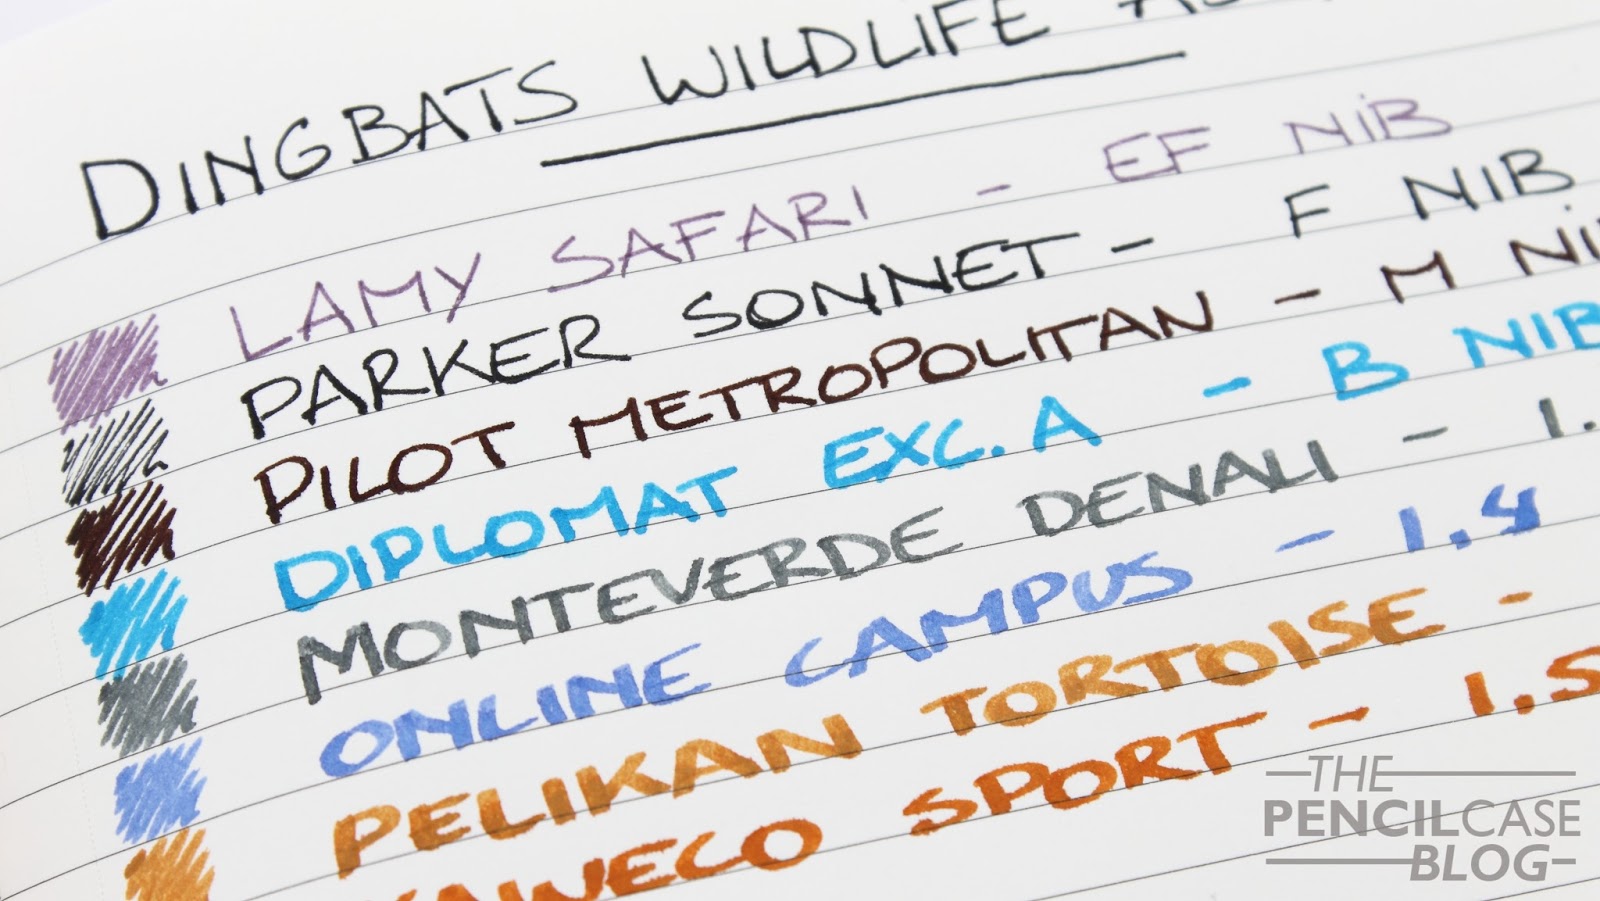 DINGBATS WILDLIFE
LAMY SAFARI - EF NIB
PARKER SONNET - F NIB
PILOT METROPOLITAN - M
DIPLOMAT EXC.A - B NIB
MONTEVERDE DENALI - 1.
ONLINE CAMPUS - 1.4
PELIKAN TORTOISE -
KAWECO SPORT - 1.5
THE
PENCILCASE
BLOG